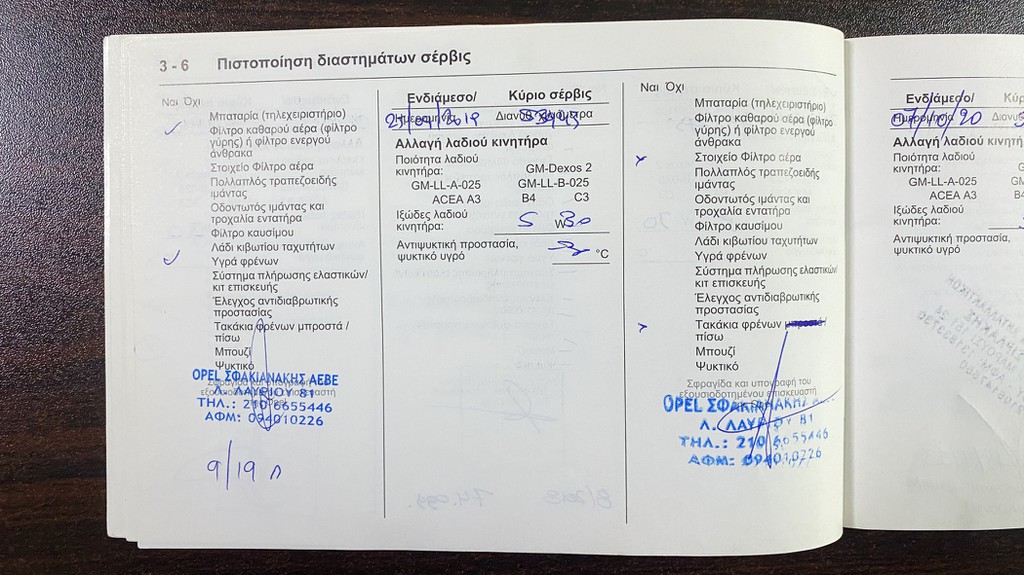 3 - 6 Πιστοποίηση διαστημάτων σέρβις
Ναι Όχι
Μπαταρία (τηλεχειριστήριο)
Φίλτρο καθαρού αέρα (φίλτρο
γύρης) ή φίλτρο ενεργού
άνθρακα
Στοιχείο Φίλτρο αέρα
Πολλαπλός τραπεζοειδής
ιμάντας
Οδοντωτός ιμάντας και
τροχαλία εντατήρα
Φίλτρο καυσίμου
Λάδι κιβωτίου ταχυτήτων
Υγρά φρένων
Σύστημα πλήρωσης ελαστικών/
κιτ επισκευής
Έλεγχος αντιδιαβρωτικής
προστασίας
Τακάκια φρένων μπροστά /
πίσω
Μπουζί
Ψυκτικό
Σφραγίδα και
εξουσιοδοτημένου επισκευαστή
OPEL ΣΦΑΚΙΑΝΑΚΗΣ ΑΕΒΕ
Λ. ΛΑΥΡΙΟΥ 81
ΤΗΛ.: 210 6655446
ΑΦΜ: 094010226
9/19
Ενδιάμεσο/ Κύριο σέρβις
Ημερομηνία
Αλλαγή λαδιού κινητήρα
Ποιότητα λαδιού
κινητήρα: GM-Dexos 2
GM-LL-A-025 GM-LL-B-025
ACEA A3 B4 C3
Ιξώδες λαδιού
κινητήρα: 5 W 30
Αντιψυκτική προστασία,
ψυκτικό υγρό °C
Ναι Όχι
Μπαταρία (τηλεχειριστήριο)
Φίλτρο καθαρού αέρα (φίλτρο
γύρης) ή φίλτρο ενεργού
άνθρακα
Στοιχείο Φίλτρο αέρα
Πολλαπλός τραπεζοειδής
ιμάντας
Οδοντωτός ιμάντας και
τροχαλία εντατήρα
Φίλτρο καυσίμου
Λάδι κιβωτίου ταχυτήτων
Υγρά φρένων
Σύστημα πλήρωσης ελαστικών/
κιτ επισκευής
Έλεγχος αντιδιαβρωτικής
προστασίας
Τακάκια φρένων μπροστά /
πίσω
Μπουζί
Ψυκτικό
Σφραγίδα και υπογραφή του
εξουσιοδοτημένου επισκευαστή
OPEL ΣΦΑΚΙΑΝΑΚΗΣ
Λ. ΛΑΥΡΙΟΥ 81
ΤΗΛ.: 210 6655446
ΑΦΜ: 094010226
Ενδιάμεσο/
Ημερομηνία
07/10/20
Αλλαγή λαδιού
Ποιότητα λαδιού
κινητήρα:
GM-LL-A-025
ACEA A3
Ιξώδες λαδιού
κινητήρα:
Αντιψυκτική προστασία,
ψυκτικό υγρό